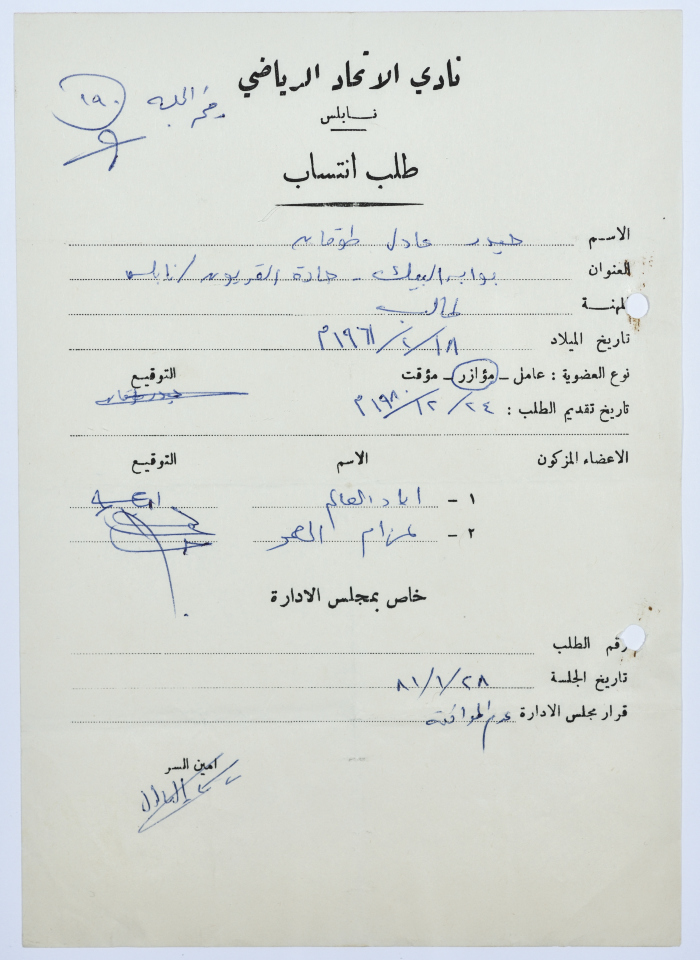 نادي الاتحاد الرياضي
نابلس
رقم الجلسة ١٩٠
طلب انتساب
الاسم حيدر عادل طوقان
العنوان بوابة البيك - حارة القريون / نابلس
المهنة طالب
تاريخ الميلاد ١٨/٢/١٩٦١م
نوع العضوية : عامل - مؤازر - مؤقت التوقيع
حيدر طوقان
تاريخ تقديم الطلب : ٢٤/١٢/١٩٨٠م
الاعضاء المزكون الاسم التوقيع
١ - اياد العالم
٢ -
خاص بمجلس الادارة
رقم الطلب
تاريخ الجلسة ٢٨/١/٨١
قرار مجلس الادارة عدم الموافقة
امين السر